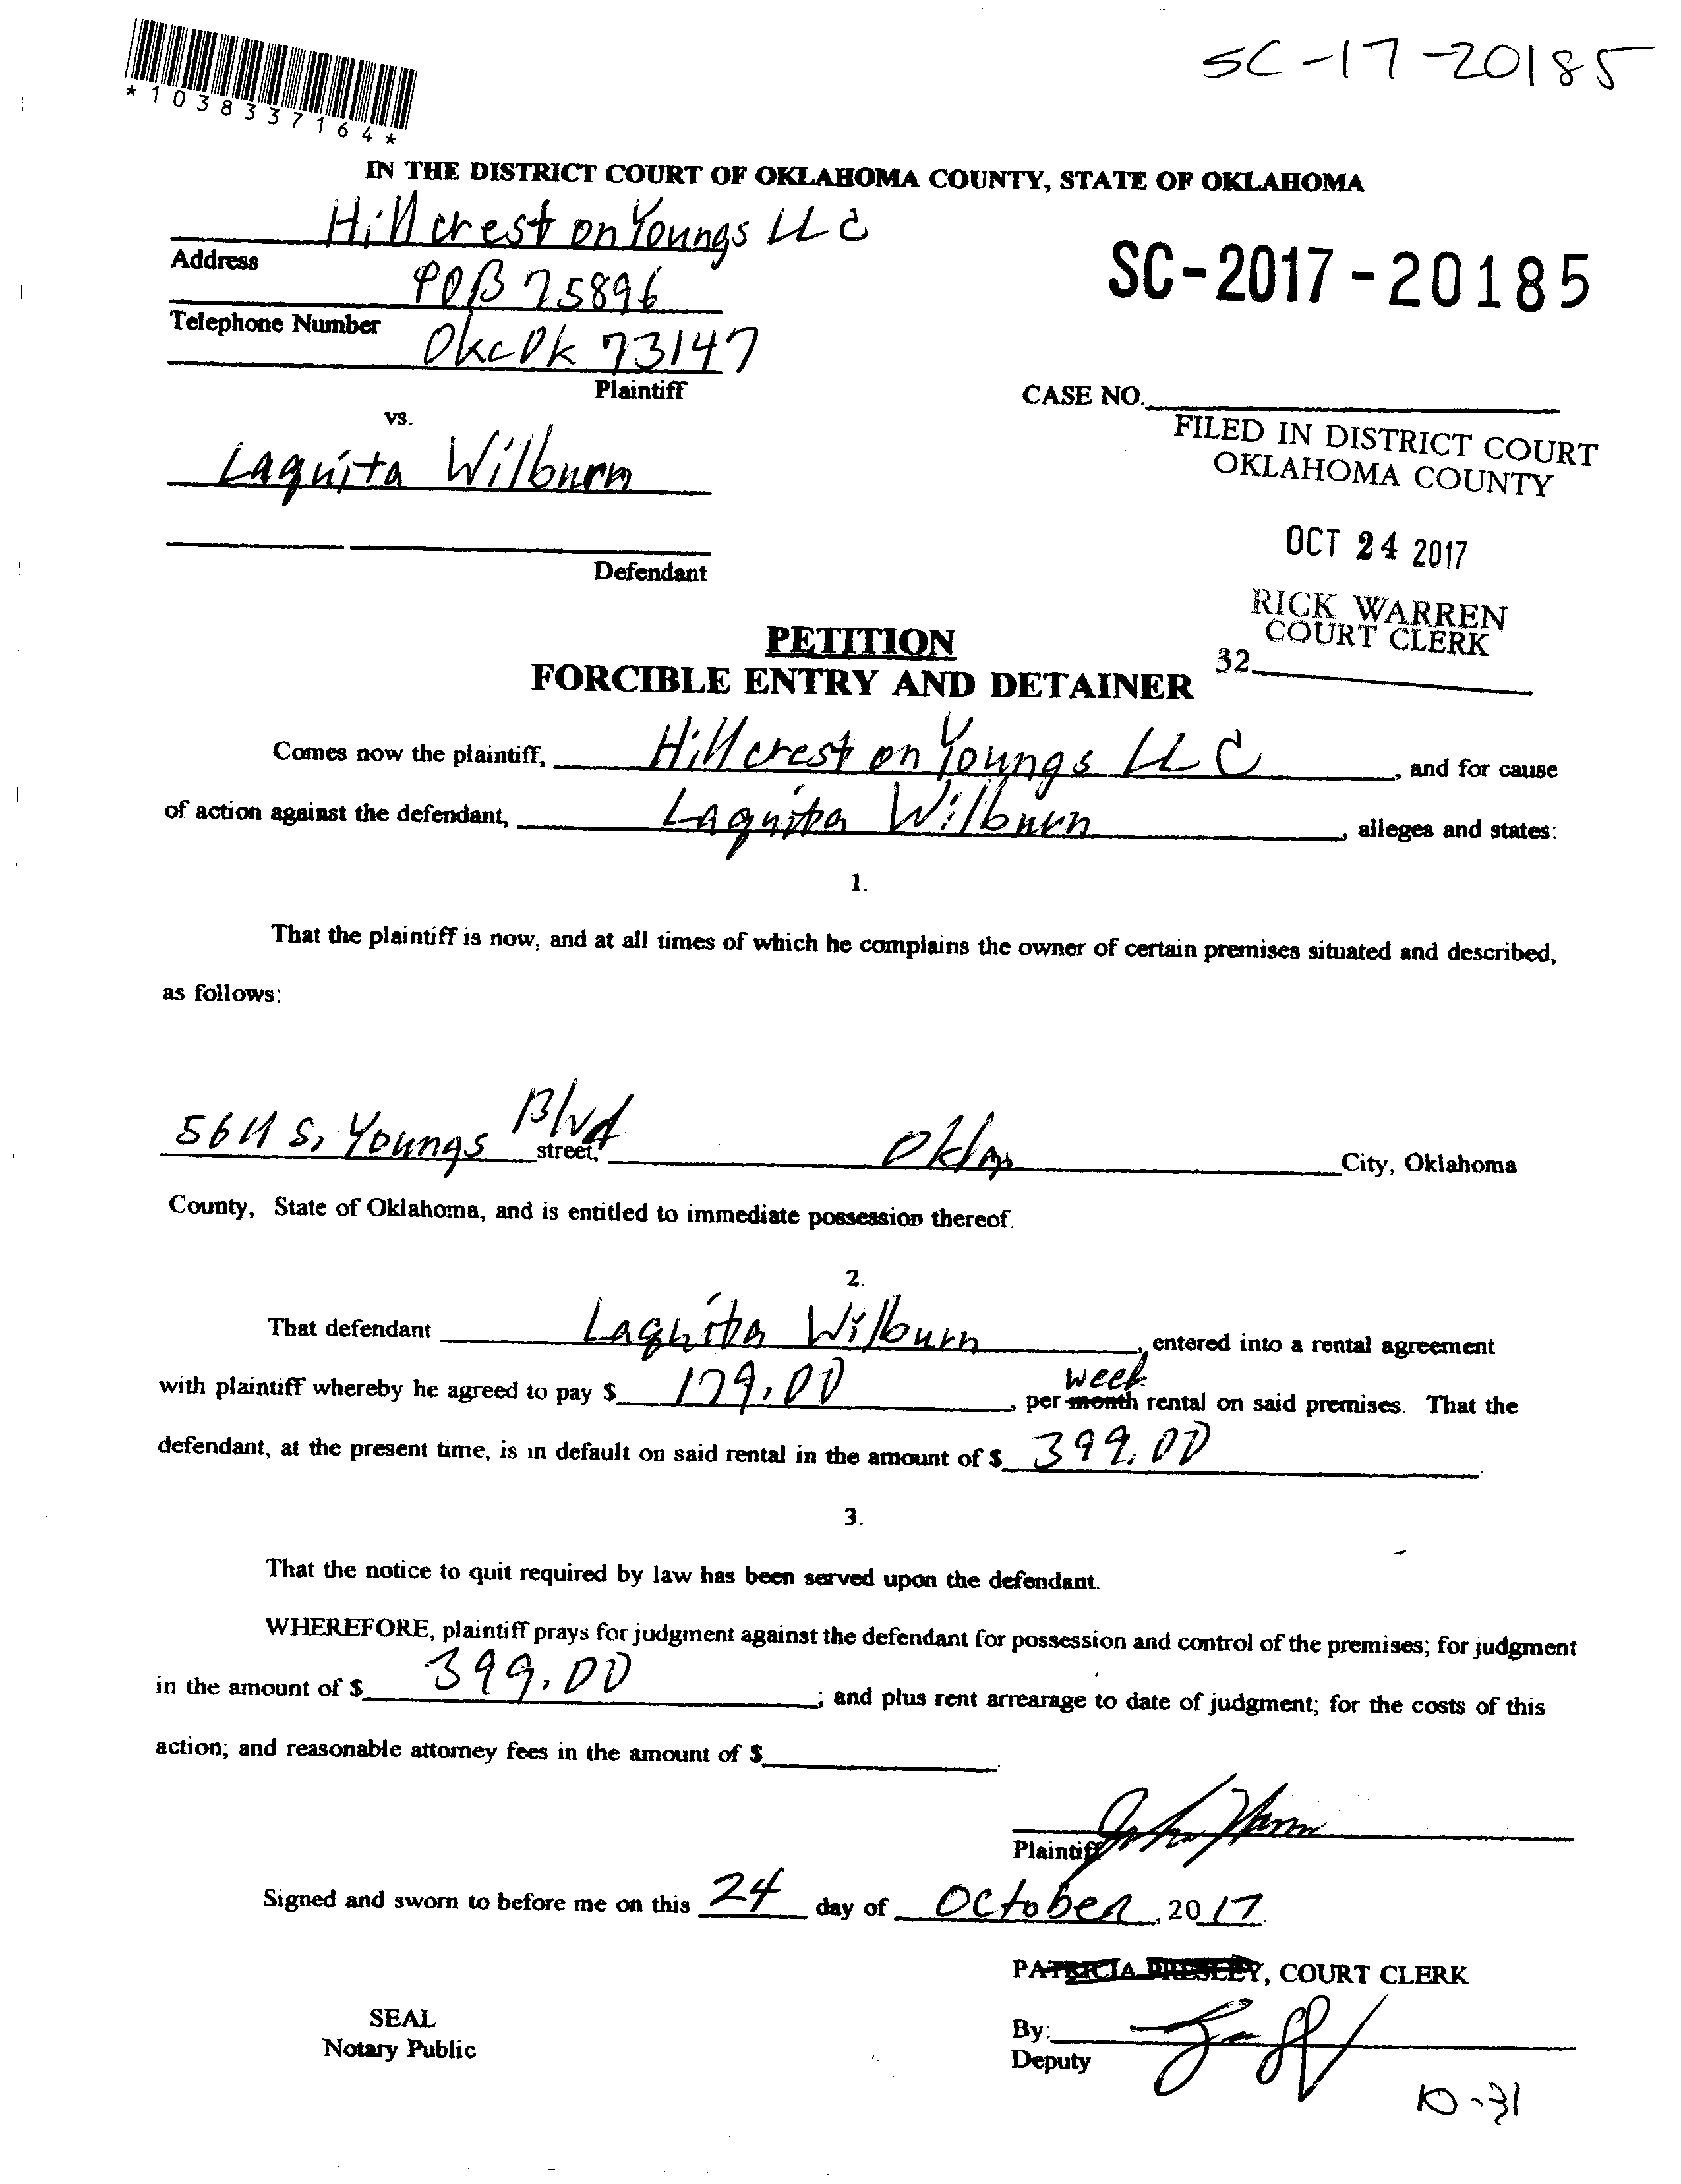 SC-17-20185
*1038337164*
IN THE DISTRICT COURT OF OKLAHOMA COUNTY, STATE OF OKLAHOMA
Hillcrest on Youngs LLC
Address
POB 75896
SC-2017-20185
Telephone Number
Okc Ok 73147
Plaintiff
CASE NO.
vs.
FILED IN DISTRICT COURT
OKLAHOMA COUNTY
Laquita Wilburn
OCT 24 2017
Defendant
RICK WARREN
COURT CLERK
32
PETITION
FORCIBLE ENTRY AND DETAINER
Comes now the plaintiff, Hillcrest on Youngs LLC, and for cause
of action against the defendant, Laquita Wilburn, alleges and states:
1.
That the plaintiff is now, and at all times of which he complains the owner of certain premises situated and described,
as follows:
5611 S. Youngs Blvd street, Okla City, Oklahoma
County, State of Oklahoma, and is entitled to immediate possession thereof.
2.
That defendant Laquita Wilburn, entered into a rental agreement
with plaintiff whereby he agreed to pay $ 179.00, per month week rental on said premises. That the
defendant, at the present time, is in default on said rental in the amount of $ 399.00.
3.
That the notice to quit required by law has been served upon the defendant.
WHEREFORE, plaintiff prays for judgment against the defendant for possession and control of the premises; for judgment
in the amount of $ 399.00; and plus rent arrearage to date of judgment; for the costs of this
action; and reasonable attorney fees in the amount of $
Plaintiff
Signed and sworn to before me on this 24 day of October, 2017.
PATRICIA PRESLEY, COURT CLERK
SEAL
Notary Public
By:
Deputy
10-31